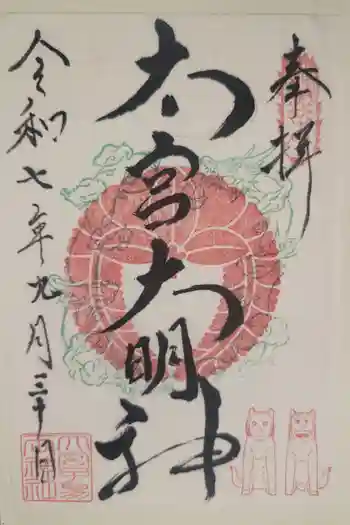 奉拝
大宮大明神
令和七年九月三十日